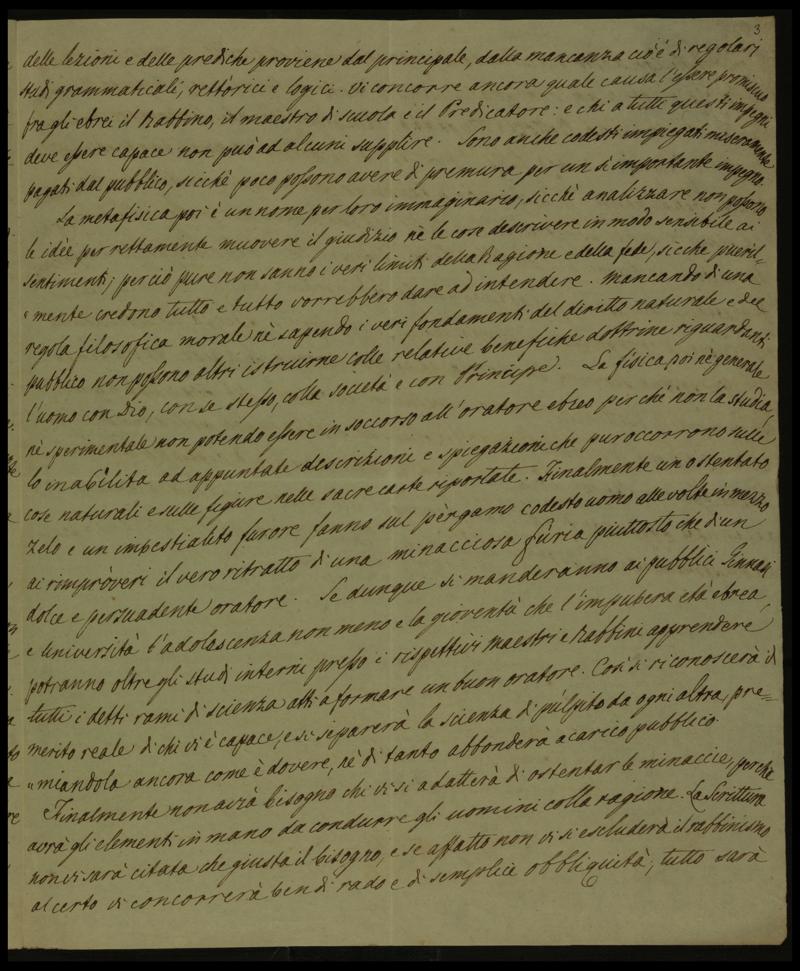 3
delle lezioni e delle prediche proviene dal principale, dalla mancanza cioè di regolari
studi grammaticali, rettorici e logici. Vi concorre ancora quale causa l'essere promiscuo
fra gli ebrei il Rabbino, il maestro di scuola e il Predicatore: e chi a tutti questi impegni
deve essere capace non può ad alcuni supplire. Sono anche codesti impiegati miseramente
pagati dal pubblico, sicchè poco possono avere di premura per un sì importante impegno.
La metafisica poi è un nome per loro immaginario, sicchè analizzare non possono
le idèe per rettamente muovere il giudizio nè le cose descrivere in modo sensibile ai
sentimenti; perciò pure non sanno i veri limiti della Ragione e della fede, sicchè pueril=
"mente credono tutto e tutto vorrebbero dare ad intendere. Mancando di una
regola filosofica morale nè sapendo i veri fondamenti del diritto naturale e del
pubblico non possono altri istruirne colle relative benefiche dottrine riguardanti
l'uomo con Dio, con se stesso, colla società e con Principe. La fisica poi nè generale
nè sperimentale non potendo essere in soccorso all'oratore ebreo perchè non la studia,
lo inabilita ad appuntate descrizioni e spiegazioni che pur occorrono sulle
cose naturali e sulle figure nelle sacre carte riportate. Finalmente un ostentato
zelo e un impestialito furore fanno sul pèrgamo codesto uomo alle volte in mezzo
ai rimpròveri il vero ritratto di una minacciosa fùria piuttosto che di un
dolce e persuadente oratore. Se dunque si manderanno ai pubblici Ginnasi
e Università l'adolascenza non meno e la gioventù che l'impubera età ebrea,
potranno oltre gli studi interni presso i rispettivi Maestri e Rabbini apprendere
tutti i detti rami di scienza atti a formare un buon oratore. Così si riconoscerà il
merito reale di chi vi è capace, e si separerà la scienza di pùlpito da ogni altra, pre=
"miandola ancora come è dovere, nè di tanto abbonderà a carico pubblico.
Finalmente non avrà bisogno chi vi si adatterà di ostentar le minaccie, perchè
avrà gli elementi in mano da condurre gli uomini colla ragione. La Scrittura
non vi sarà citata che giusta il bisogno, e se affatto non vi si escluderà il rabbinismo
al certo vi concorrerà ben di rado e di semplice obbliquità; tutto sarà